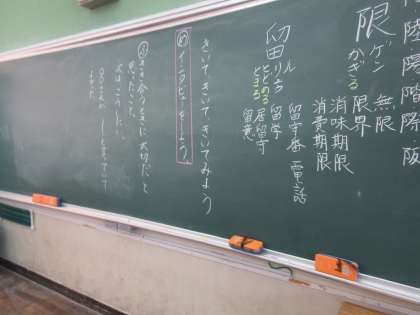 陸陽隔階降阪
限
ゲン
かぎる
無限
限界
消味期限
消費期限
留
ル
リュウ
とめる
とまる
留守番電話
留学
居留守
留意
きいて、きいて、きいてみよう
め インタビューをしよう。
③きき合うときに大切だと
思ったこと。
次はこうしたい。